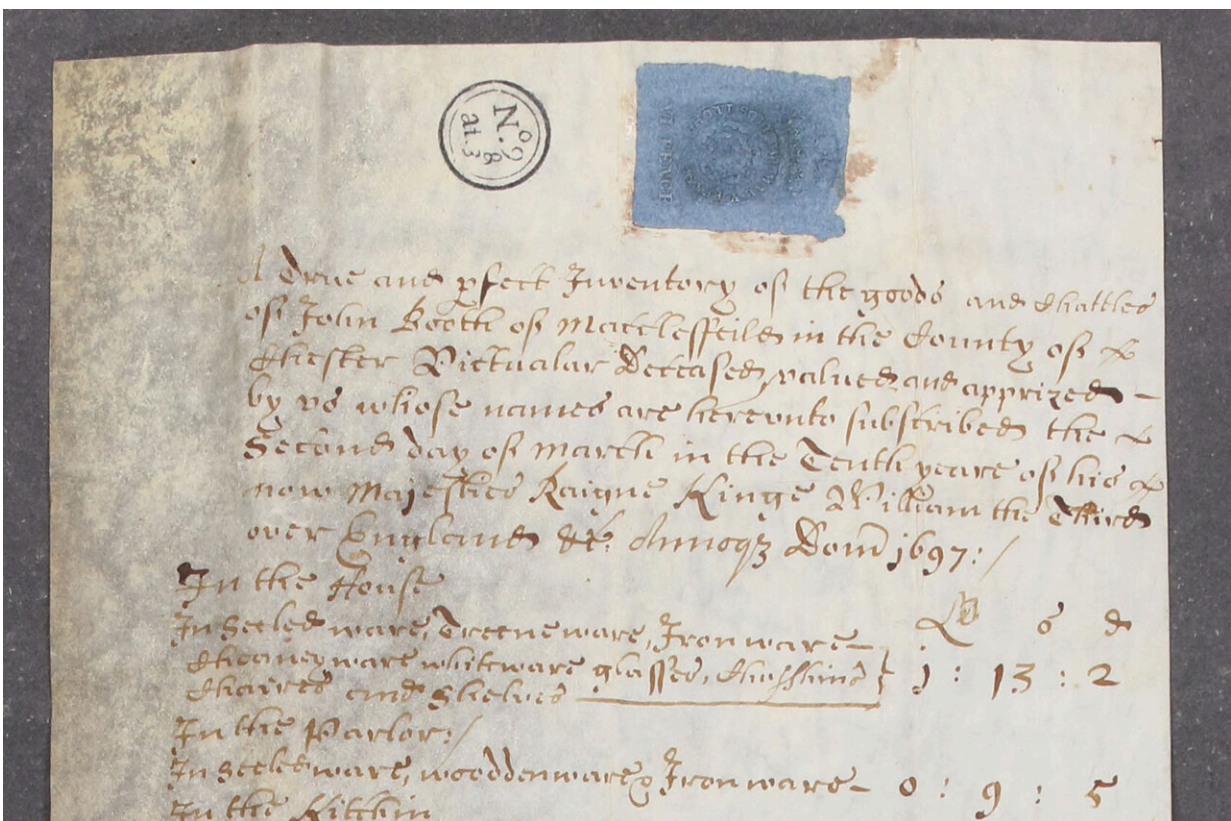 No. 9
at. 8
3
VI PENCE
A True and pfect Inventory of the goods and Chattles
of John Booth of Macclesfeild in the County of
Chester Victualar Deceased, valued and apprized –
by vs whose names are herevnto subscribed the
Second day of March in the Tenth yeare of his
now Majesties Raigne Kinge William the Third
over England &c. Annoqz Dom 1697:/
In the House
Li s d
In Seeled ware, Treene ware, Iron ware –
Cheaney ware whitware glasses, Chusshins 1 : 13 : 2
Chaires and Shelves
In the Parlor:/
In Seeled ware, woodden ware & Iron ware – 0 : 9 : 5
In the Kitchin